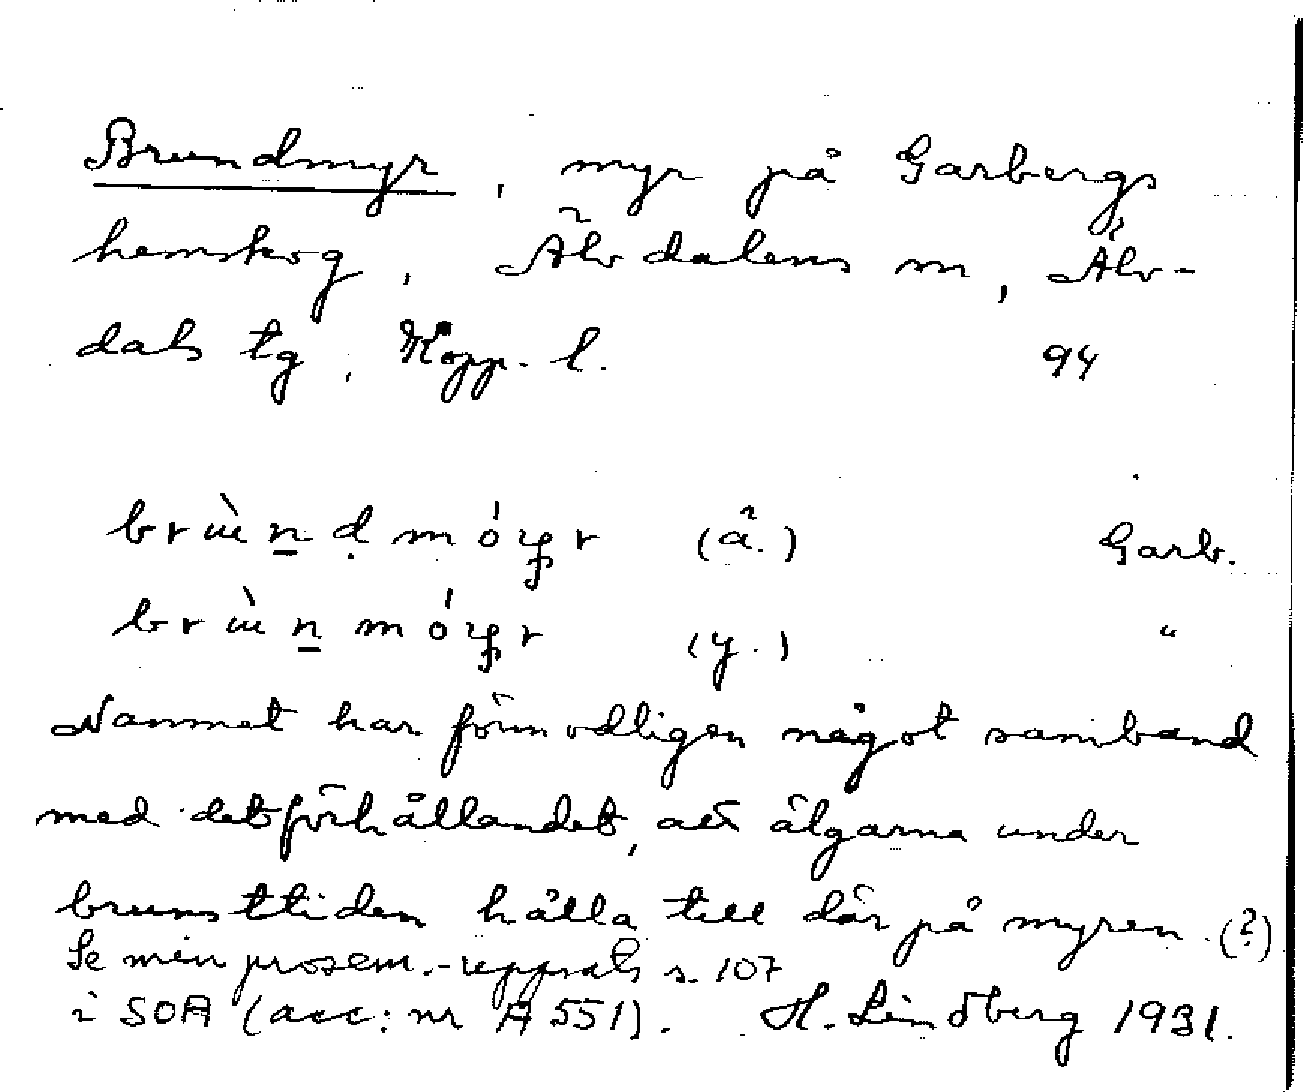 Brundmyr, myr på Garbergs
hemskog, Älvdalens sn, Älv-
dals tg, Kopp. l. 94
(ä.) Garb.
(y.) "
Namnet har förmodligen något samband
med det förhållandet, att älgarna under
brunsttiden hålla till där på myren. (?)
Se min prosem.-uppsats s. 107
i SOA (acc: nr A 551). H. Lindberg 1931.